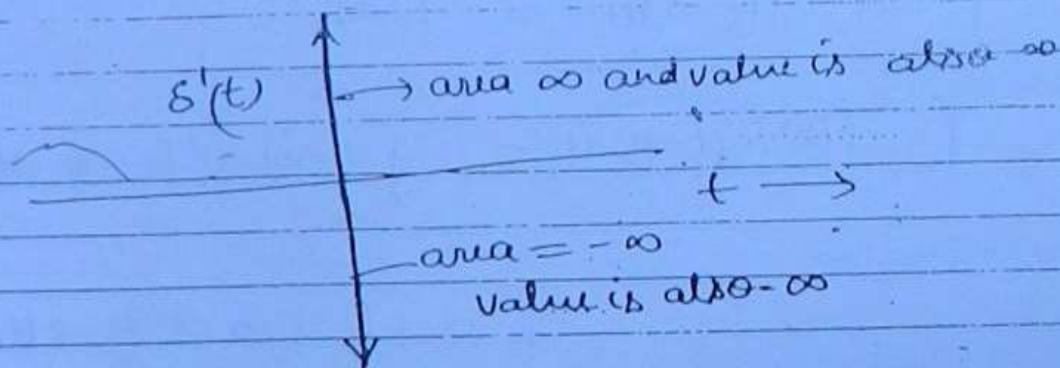 δ'(t)
→ area ∞ and value is also ∞
t →
area = -∞
value is also -∞